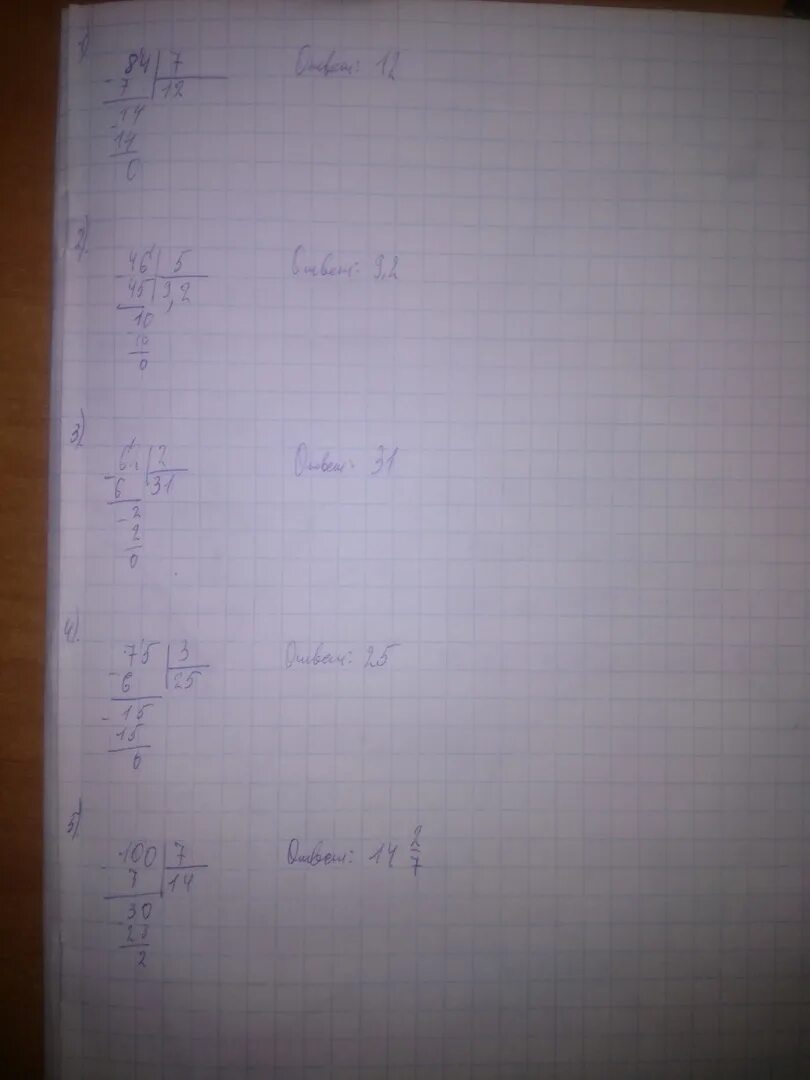 1)
84 7 Ответ: 12
-7 12
-14
14
0
2)
46 5 Ответ: 9,2
45 9,2
10
10
0
3)
62 2 Ответ: 31
-6 31
-2
2
0
4)
75 3 Ответ: 25
-6 25
-15
15
0
5)
100 7 Ответ: 14 2/7
-7 14
30
28
2